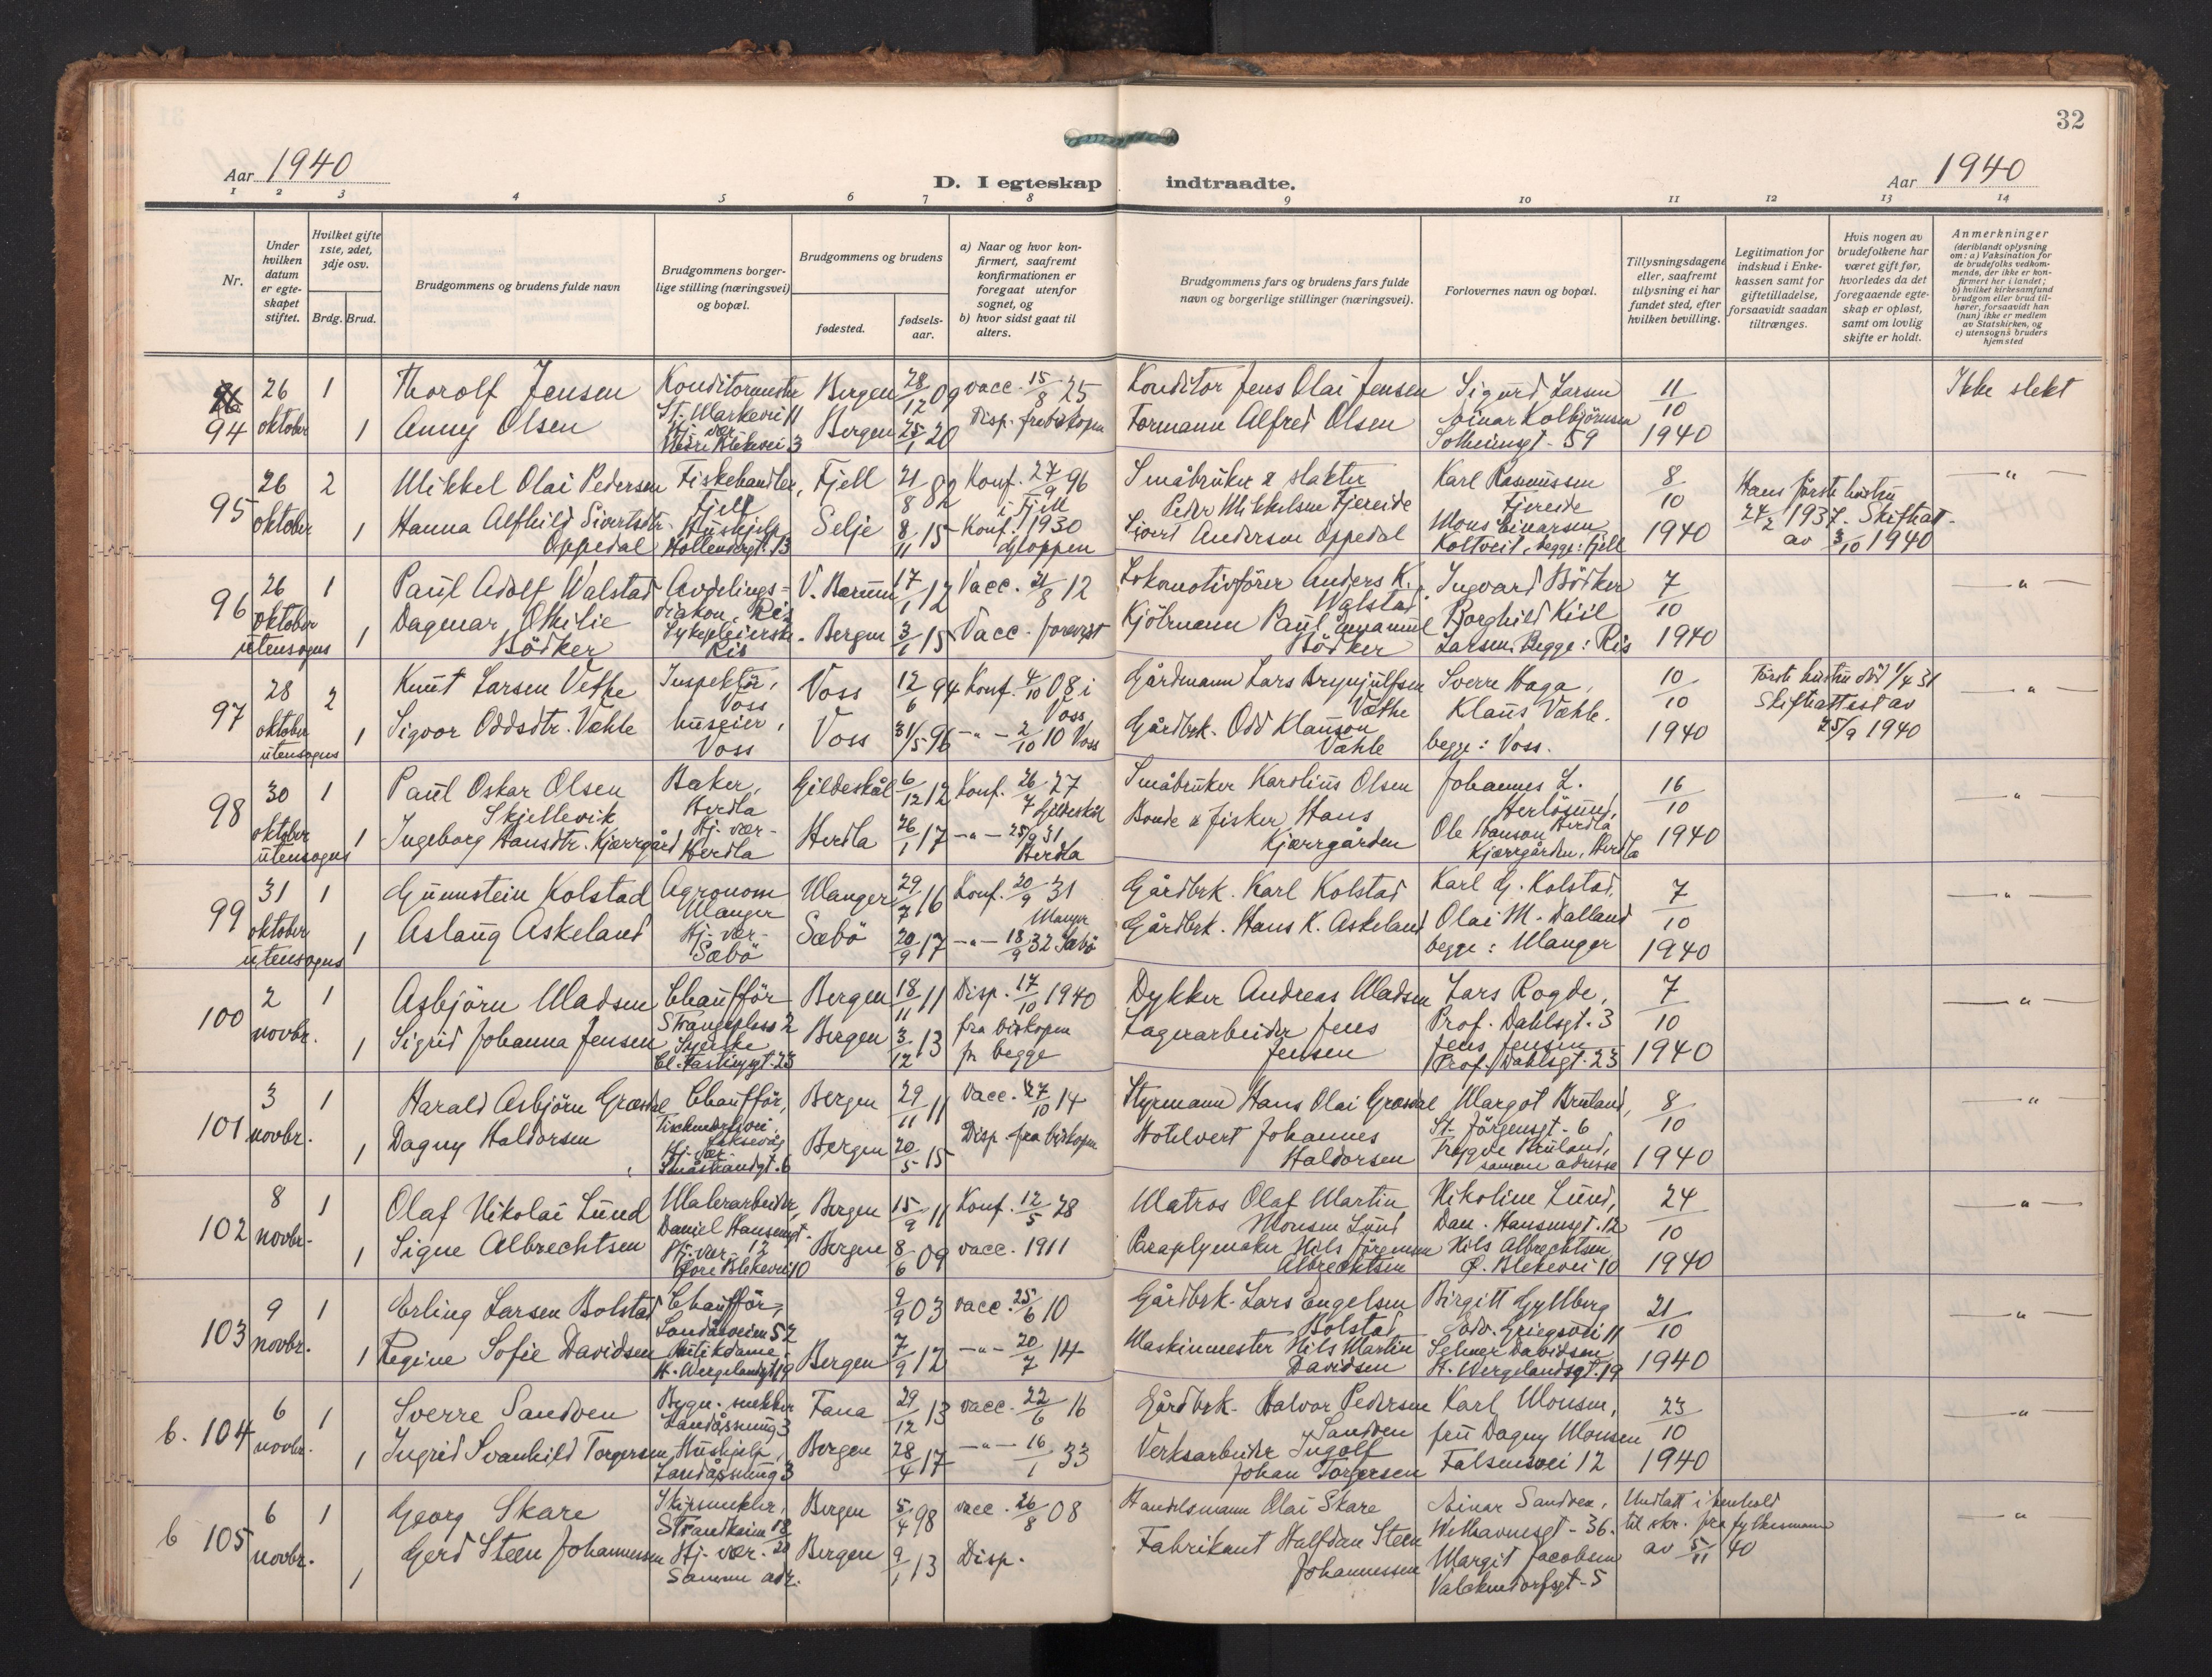 32
Aar 1940
D. I egteskap indtraadte.
Aar 1940
1 2 3 4 5 6 7 8 9 10 11 12 13 14
Nr.
Under hvilken datum er egteskapet stiftet.
Hvilket gifte 1ste, 2det, 3dje osv.
Brdg. Brud.
Brudgommens og brudens fulde navn
Brudgommens borgerlige stilling (næringsvei) og bopæl.
Brudgommens og brudens
fødested.
fødselsaar.
a) Naar og hvor konfirmert, saafremt konfirmationen er foregaat utenfor sognet, og
b) hvor sidst gaat til alters.
Brudgommens fars og brudens fars fulde navn og borgerlige stillinger (næringsvei).
Forlovernes navn og bopæl.
Tillysningsdagene eller, saafremt tillysning ei har fundet sted, efter hvilken bevilling.
Legitimation for indskud i Enkekassen samt for giftetilladelse, forsaavidt saadan tiltrænges.
Hvis nogen av brudefolkene har været gift før, hvorledes da det foregaaende egteskap er opløst, samt om lovlig skifte er holdt.
Anmerkninger
(deriblandt oplysning om: a) Vaksination for de brudefolks vedkommende, der ikke er konfirmert her i landet; b) hvilket kirkesamfund brudgom eller brud tilhører, forsaavidt han (hun) ikke er medlem av Statskirken, og c) utensogns bruders hjemsted
94 26 oktober 1 Thorolf Jensen Konditormester St. Markevei 11 Bergen 28/12 09 vacc. 15/8 25 Konditor Jens Olai Jensen Sigurd Larsen 11/10 1940 Ikke slekt
1 Anny Olsen Hj. vær. Bergen 25/1 20 Disp. fra biskopen Formann Alfred Olsen Einar Kolbjörnsen Solheimsgt. 59
95 26 oktober 2 Mikkel Olai Pedersen Fiskehandler, Fjell Fjell 21/8 82 Konf. 27/9 96 i Fjell Småbruker & slakter Peder Mikkelsen Fjereide Karl Rasmussen Fjereide 8/10 1940 Hans første hustru 24/2 1937. Skifteatt. av 3/10 1940 — " —
1 Hanna Alfhild Sivertsdtr. Oppedal Hushjelp Hollendergt. 13 Selje 8/11 15 Konf. 1930 Gloppen Sivert Andersen Oppedal Mons Einarsen Koltveit, begge: Fjell
96 26 oktober utensogns 1 Paul Adolf Walstad Avdelingsdiakon, Ris V. Bærum 17/1 12 Vacc. 21/8 12 Lokomotivfører Anders K. Walstad Ingvard Bödker 7/10 1940 — " —
1 Dagmar Othilie Bödker Sykepleierske Ris Bergen 3/1 15 Vacc. forevist Kjölmann Paul Emanuel Bödker Borghild Kiil Larsen. Begge: Ris
97 28 oktober utensogns 2 Knut Larsen Vethe Inspektör, Voss Voss 12/6 94 Konf. 4/10 08 i Voss Gårdmann Lars Brynjulfsen Vethe Sverre Haga, 10/10 1940 Første hustru död 1/4 31 Skifteattest av 25/9 1940 — " —
1 Sigvor Oddsdtr. Væhle huseier, Voss Voss 31/5 96 — " — 2/10 10 Voss Gårdbrk. Odd Klauson Væhle Klaus Væhle. begge: Voss.
98 30 oktober utensogns 1 Paul Oskar Olsen Skjellevik Baker, Herdla Gildeskål 6/12 12 Konf. 26/7 27 Gildeskål Småbruker Karolius Olsen Johannes L. Herlösund, Herdla 16/10 1940 — " —
1 Ingeborg Hansdtr. Kjærrgård Hj. vær. Herdla Herdla 26/1 17 — " — 25/9 31 Herdla Bonde & fisker Hans Kjærrgården Ole Hanson Kjærrgården, Herdla
99 31 oktober utensogns 1 Gunnstein Kolstad Agronom Manger Manger 29/7 16 Konf. 20/9 31 Manger Gårdbrk. Karl Kolstad Karl G. Kolstad, 7/10 1940 — " —
1 Aslaug Askeland Hj. vær. Sæbö Sæbö 20/9 17 — " — 18/9 32 Sæbö Gårdbrk. Hans K. Askeland Olai M. Dalland begge: Manger
100 2 novbr. 1 Asbjörn Madsen Chaufför Strangeplass 2 Bergen 18/11 11 Disp. 17/10 1940 Dykker Andreas Madsen Lars Rogde, Prof. Dahlsgt. 3 7/10 1940 — " —
1 Sigrid Johanna Jensen Syerske Cl. Fastingsgt. 23 Bergen 3/12 13 fra biskopen fr. begge Lagerarbeider Jens Jensen Jens Jensen Prof. Dahlsgt. 23
101 3 novbr. 1 Harald Asbjörn Græsdal Chaufför, Laksevåg Bergen 29/11 11 Vacc. 27/10 14 Styrmann Hans Olai Græsdal Margot Bruland, St. Jörgensgt. 6 8/10 1940 — " —
1 Dagny Haldorsen Hj. vær. Småstrandgt. 6 Bergen 20/5 15 Disp. fra biskopen Hotelvert Johannes Haldorsen Trygve Bruland, samme adresse
102 8 novbr. 1 Olaf Nikolai Lund Malerarbeider, Daniel Hansensgt. 12 Bergen 15/9 11 Konf. 12/5 28 Matros Olaf Martin Monsen Lund Nikoline Lund, Dan. Hansensgt. 12 24/10 1940 — " —
1 Signe Albrechtsen Hj. vær. Övre Blekevei 10 Bergen 8/6 09 vacc. 1911 Paraplymaker Nils Jörgensen Albrechtsen Nils Albrechtsen, Ö. Blekevei 10
103 9 novbr. 1 Erling Larsen Bolstad Chaufför, Landåsveien 52 9/9 03 vacc. 25/6 10 Gårdbrk. Lars Engelsen Bolstad Birgitt Gyllberg Edv. Griegsvei 11 21/10 1940 — " —
1 Regine Sofie Davidsen Butikdame, H. Wergelandsgt. 19 Bergen 7/9 12 — " — 20/7 14 Maskinmester Nils Martin Davidsen Selmer Davidsen H. Wergelandsgt. 19
b. 104 6 novbr. 1 Sverre Sandven Bygn. snekker Landåssving 3 Fana 29/12 13 vacc. 22/6 16 Gårdbrk. Halvor Pedersen Sandven Karl Monsen, 23/10 1940 — " —
1 Ingrid Svanhild Torgersen Hushjelp, Landåssving 3 Bergen 28/4 17 — " — 16/1 33 Verksarbeider Ingolf Johan Torgersen fru Dagny Monsen Falsensvei 12
b 105 6 novbr. 1 Georg Skare Skipsmekler, Bergen 5/4 98 vacc. 26/8 08 Handelsmann Olai Skare Einar Sandven, Welhavensgt. 36. Undlatt i henhold til skr. fra fylkesmann av 5/11 40 — " —
1 Gerd Steen Johannessen Hj. vær. Samme adr. Bergen 9/1 13 Disp. Fabrikant Halfdan Steen Johannessen Margit Jacobsen Valckendorfsgt. 5